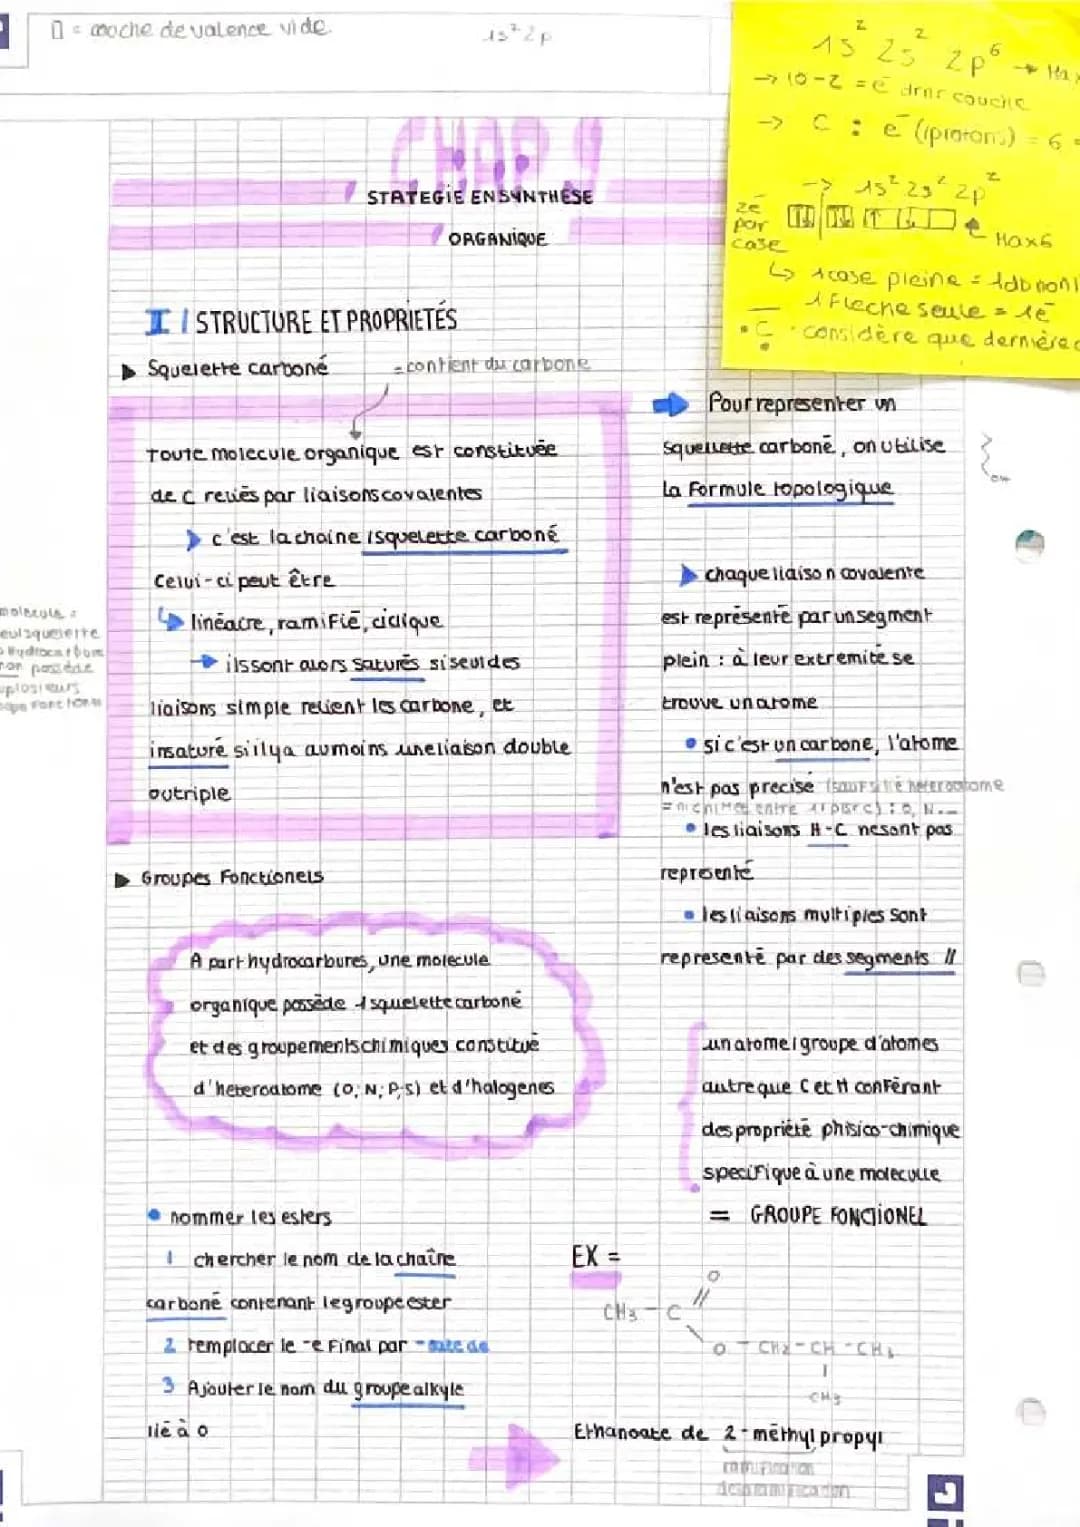 ▯ = couche de valence vide
1s² 2p
1s² 2s² 2p⁶ → Max
→ 10-2 = e⁻ drnr couche
→ C : e⁻ (protons) = 6 =
→ 1s² 2s² 2p²
2e⁻
par
case
Max6
↳ 1 case pleine = 1db non l
1 Fleche seule = 1e⁻
• C • considère que dernière c
CHAP 9
STATEGIE EN SYNTHÈSE
ORGANIQUE
I / STRUCTURE ET PROPRIETÉS
▶ Squelette carboné
= contient du carbone
Toute molecule organique est constituée
de C reliés par liaisons covalentes
c'est la chaine / squelette carboné
Celui-ci peut être
linéacre, ramifié, ciclique
ils sont alors saturés si seul des
liaisons simple relient les carbone, et
insaturé si il y a au moins une liaison double
ou triple
molecule =
eul squelette
Hydrocarbon
non possède
plusieurs
▶ Groupes Fonctionels
A part hydrocarbures, une molecule
organique possède 1 squelette carboné
et des groupements chimiques constitué
d'heteroatome (O; N; P; S) et d'halogenes
• nommer les esters
1 chercher le nom de la chaîne
carboné contenant le groupe ester
2 remplacer le -e Final par -oate de
3 Ajouter le nom du groupe alkyle
lié à O
Pour representer un
squelette carboné, on utilise
la Formule topologique
OH
chaque liaison covalente
est représenté par un segment
plein : à leur extremité se
trouve un atome
• si c'est un carbone, l'atome
n'est pas precisé (sauf si heteroatome
• les liaisons H-C ne sont pas
representé
• les liaisons multiples sont
representé par des segments //
un atome / groupe d'atomes
autre que C et H conférant
des propriété phisico-chimique
specifique à une molecule
= GROUPE FONCTIONEL
EX =
O
//
CH₃ - C
\
O - CH₂ - CH - CH₃
|
CH₃
Ethanoate de 2-méthyl propyl
ramification